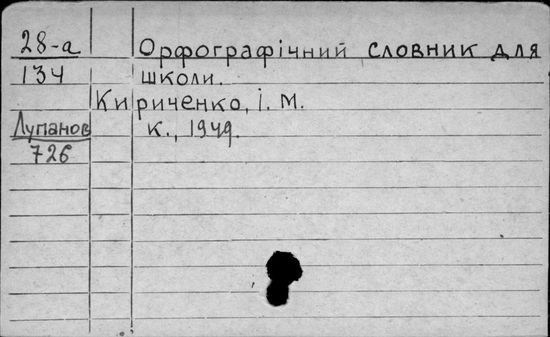 28-а Орфографічний словник для
134 школи.
Кириченко, і. м.
Лупанов к., 1949.
726